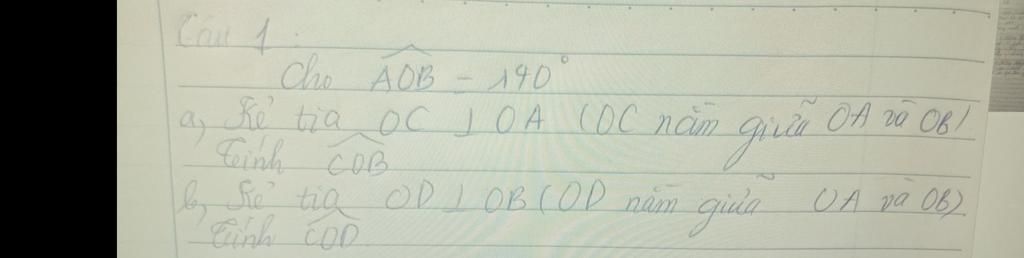 Câu 1 :
Cho AOB = 140°
a, Kẻ tia OC ⊥ OA (OC nằm giữa OA và OB)
Tính COB
b, Kẻ tia OD ⊥ OB (OD nằm giữa OA và OB)
Tính COD